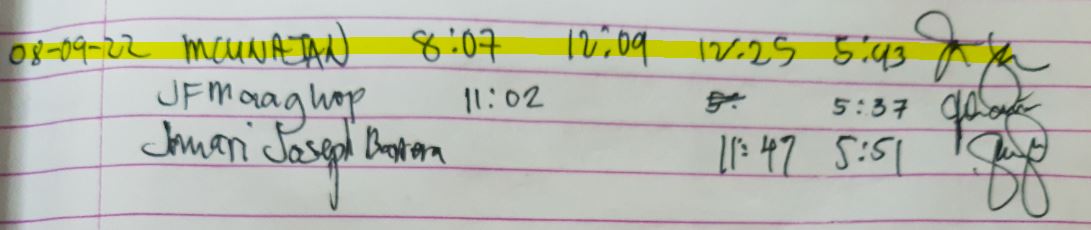 08-09-22 MCUNATAN 8:07 12:09 12:25 5:43
JFMaaghop 11:02 5:37
Jomari Joseph 11:47 5:51